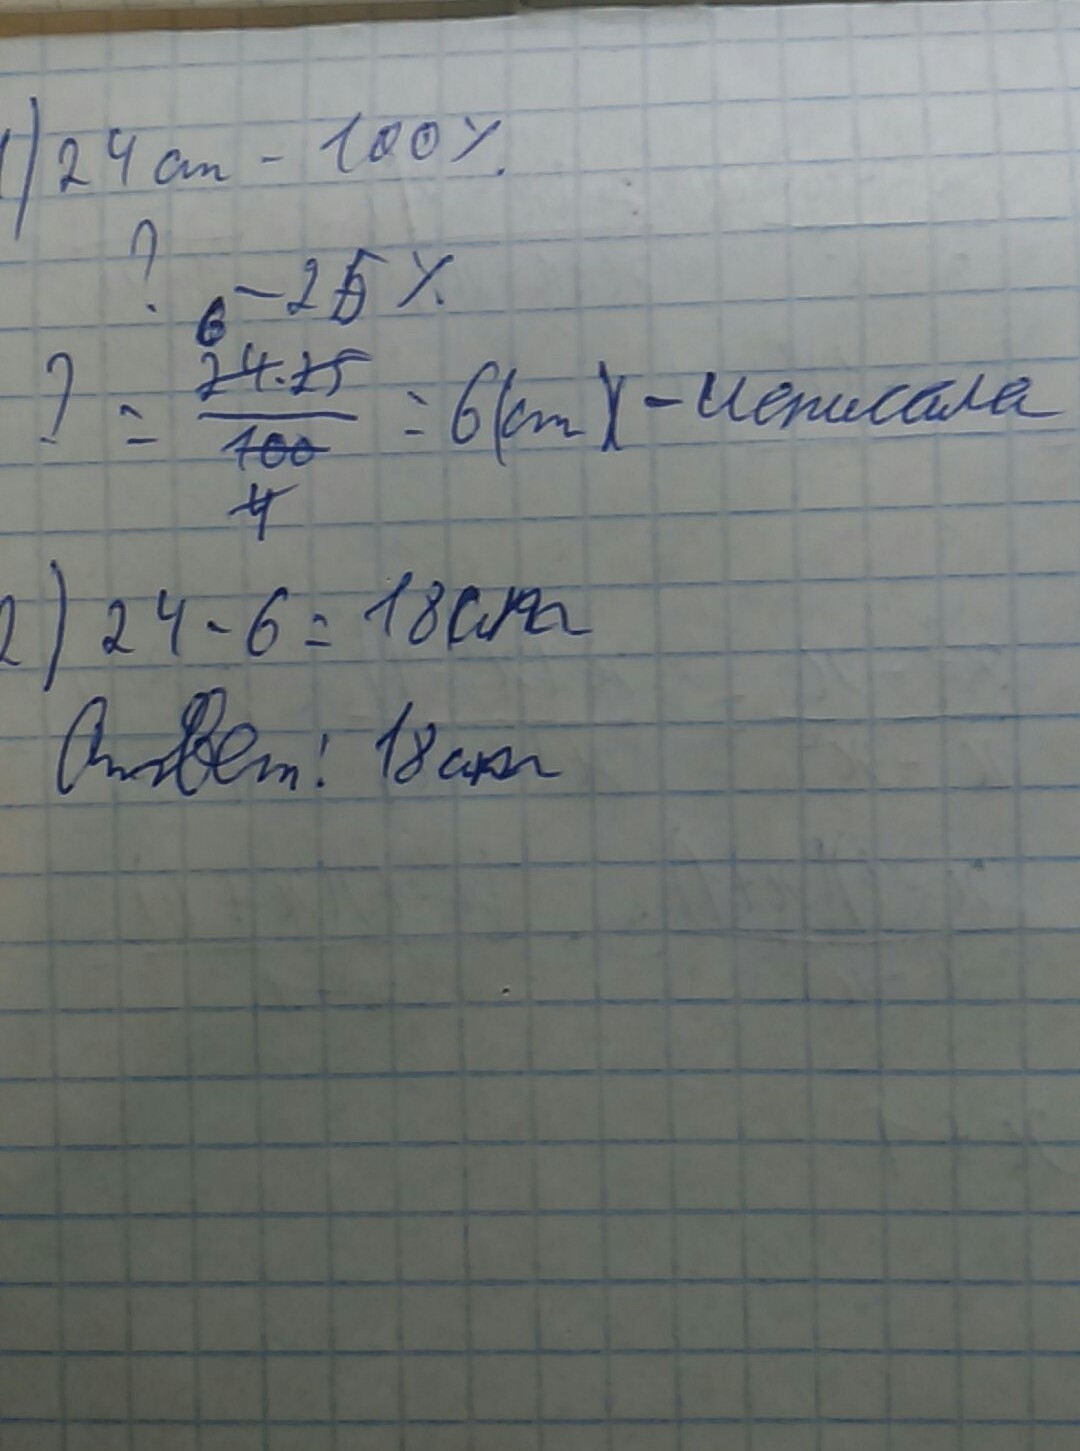 1) 24 ст - 100%.
? - 25%.
? = 24·25 / 100 = 6(ст) - исписала
6
4
2) 24 - 6 = 18
Ответ: 18